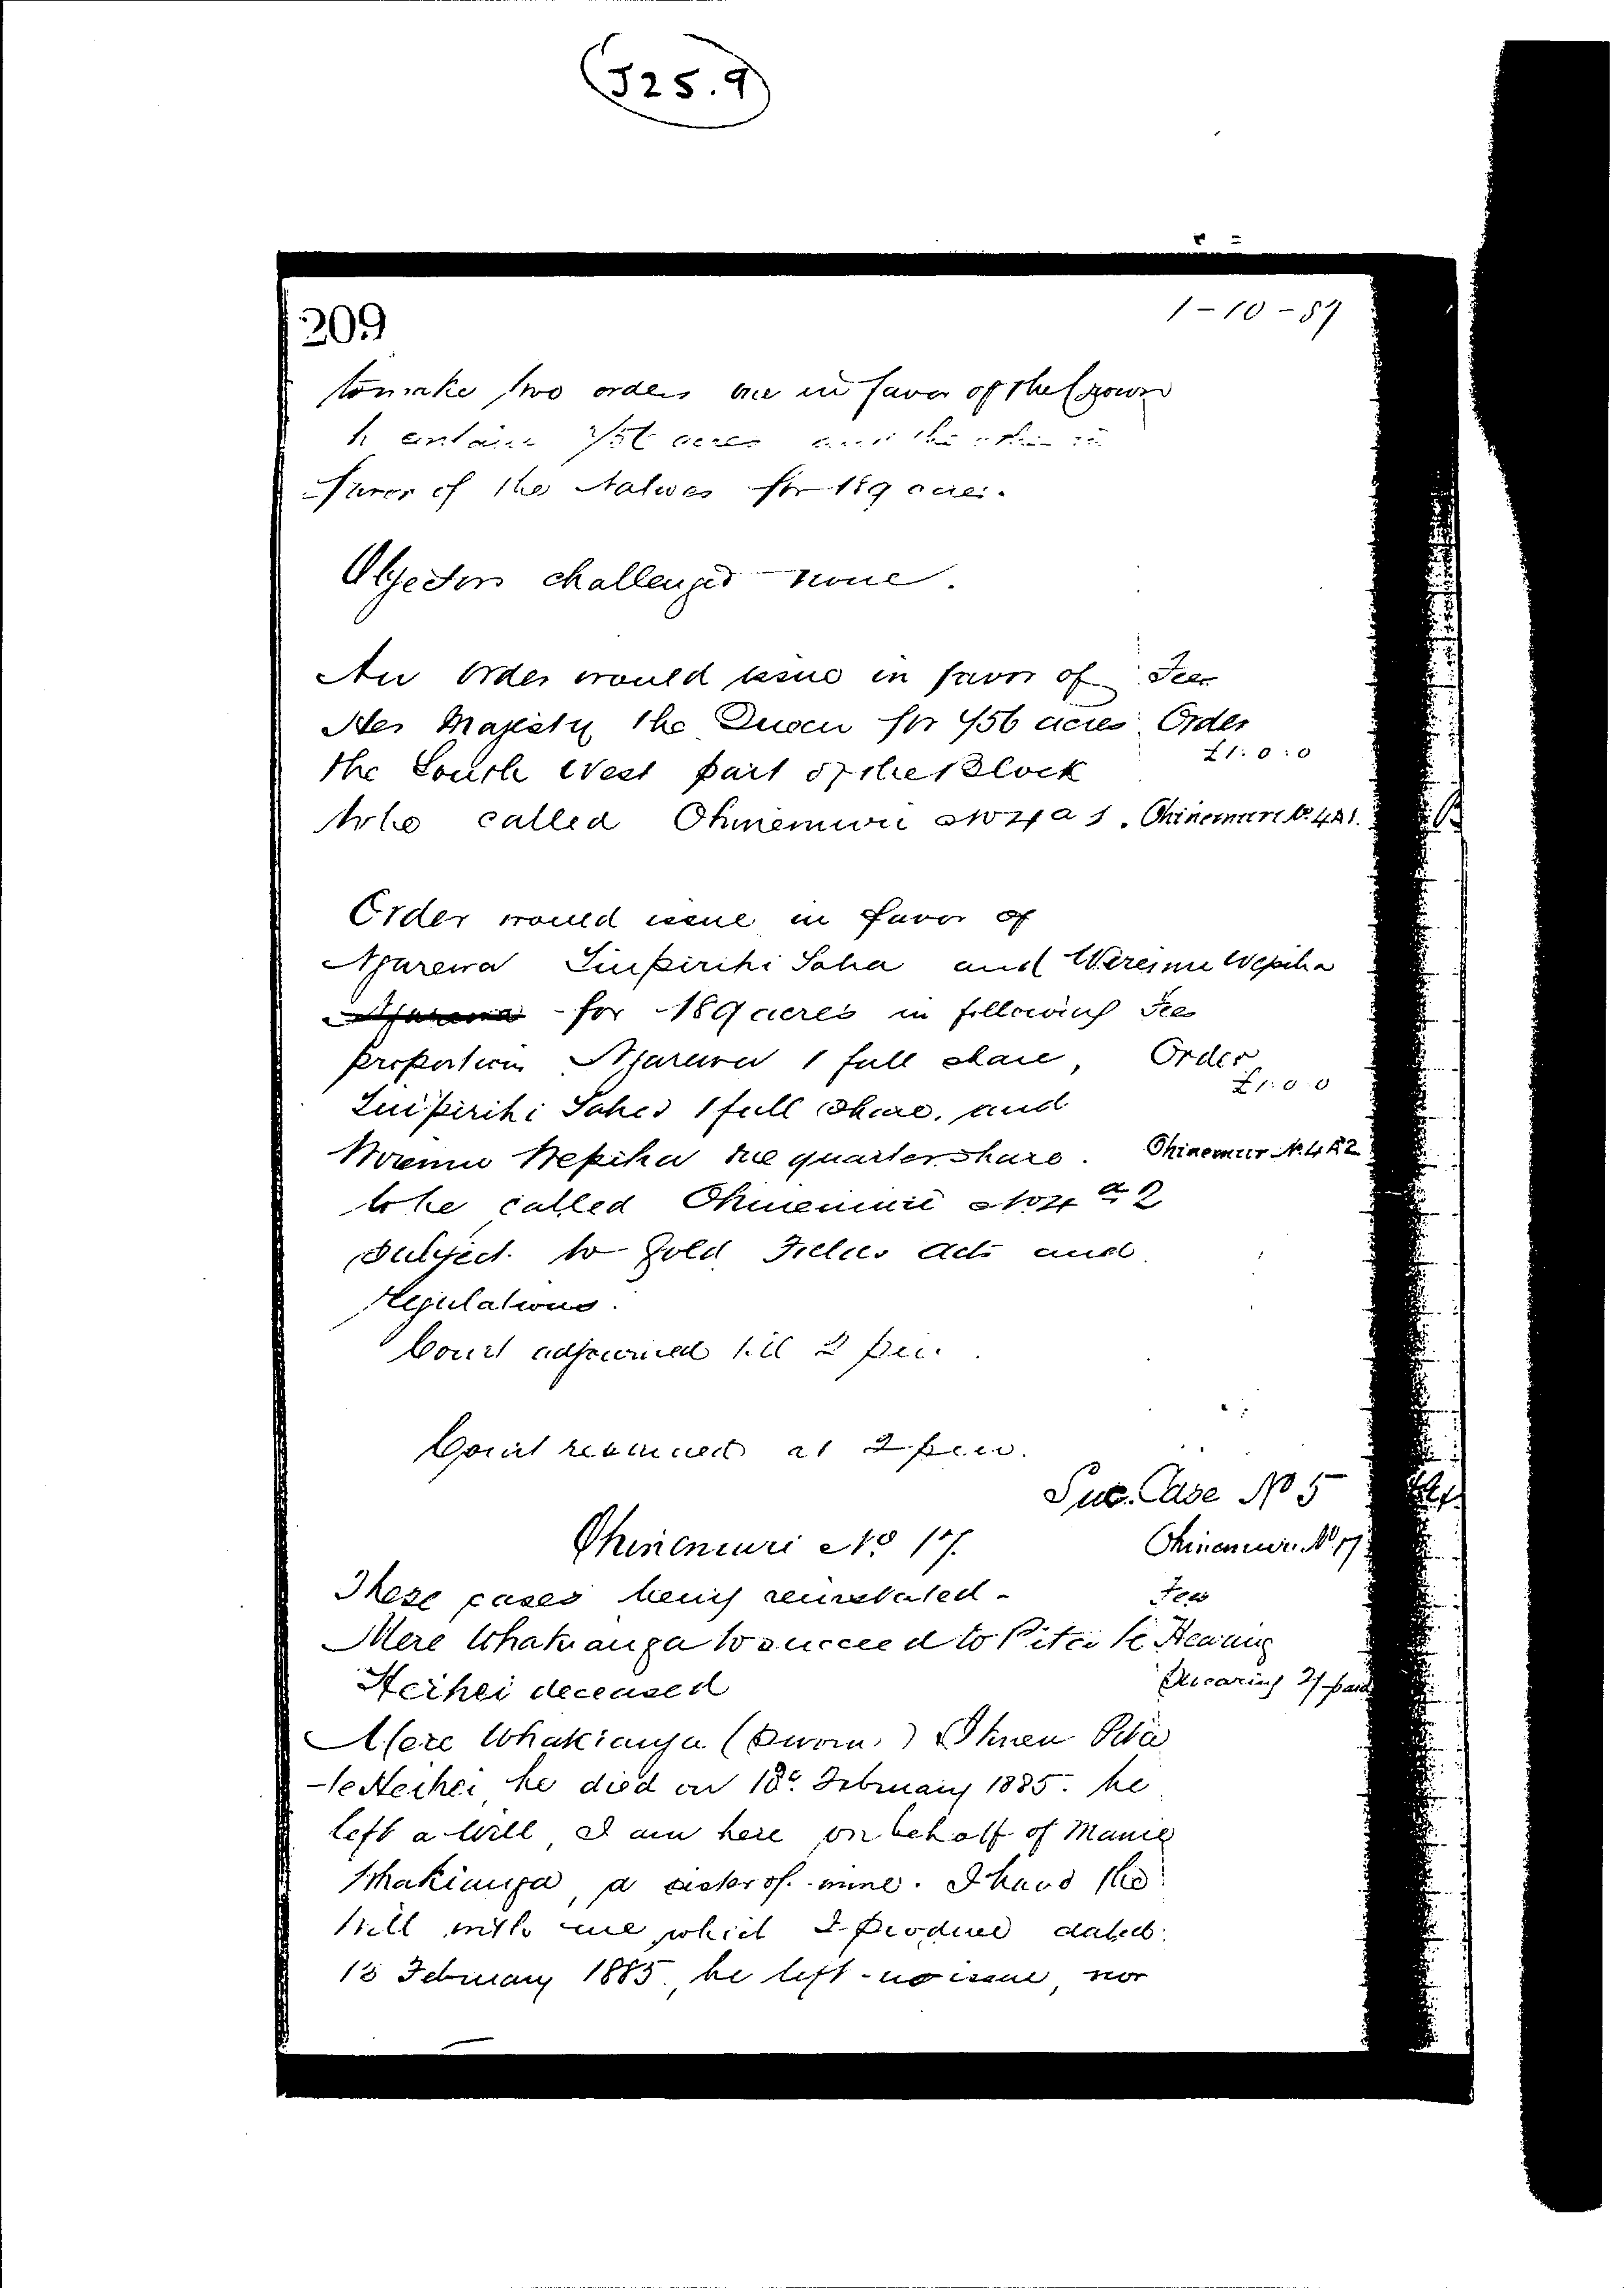 J25.9
209
1-10-89
to make two orders one in favor of the Crown
to contain 756 acres and the other in
favor of the Natives for 189 acres.
Objectors challenged none.
An Order would issue in favor of Fee
Her Majesty the Queen for 756 acres Order
£1:0:0
the South West part of the Block
to be called Ohinemuri No 4 a 1. Ohinemuri No. 4A1.
Order would issue in favor of
Ngarewa and
for 189 acres in following Fee
proportion Ngarewa 1 full share, Order
£1.0.0
1 full share, and
one quarter share. Ohinemuri No. 4A2
to be called Ohinemuri No 4 a 2
Subject to Gold Fields Acts and
Regulations.
Court adjourned till 2 pm.
Court resumed at 2 pm.
Suc. Case No 5
Ohinemuri No 17. Ohinemuri No. 17
These cases being reinstated - Fees
Mere Whakianga to succeed to Pita te Hearing
Heihei deceased Swearing 2/ paid
Mere Whakianga (Sworn.) I knew Pita
te Heihei he died on 18th February 1885. he
left a Will, I am here on behalf of
Whakianga, a sister of mine. I have the
Will with me which I produce dated
13 February 1885, he left no issue, nor